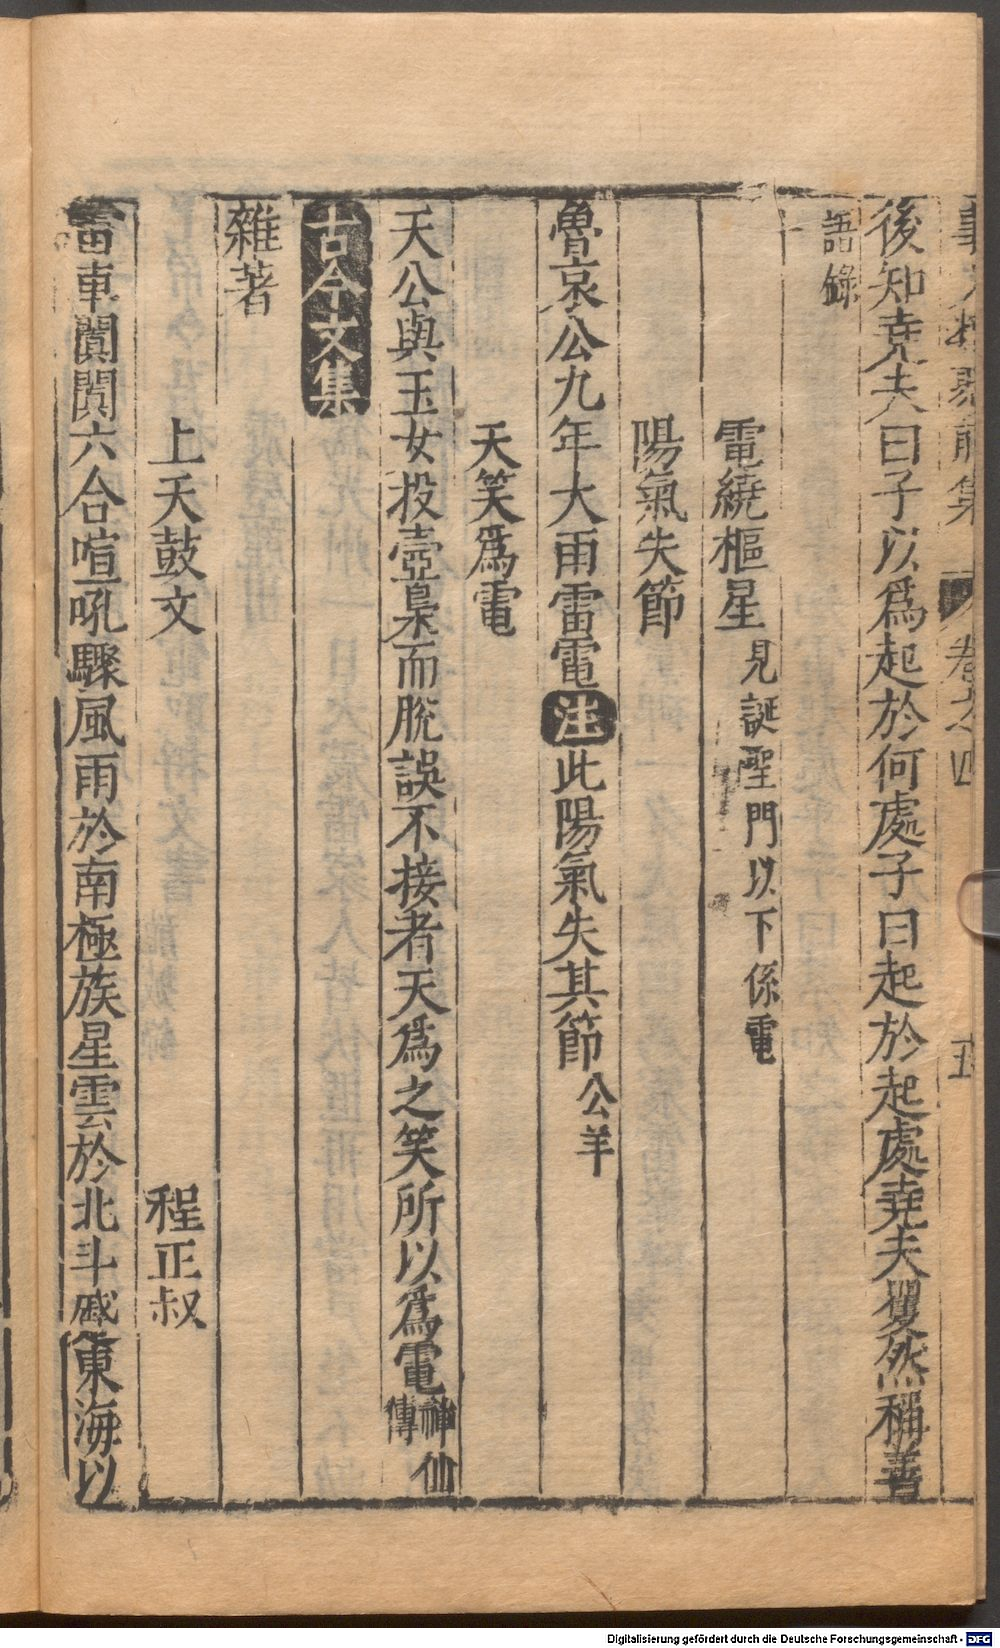 後知堯夫曰子以爲起於何處子曰起於起處堯夫矍然稱善
語錄
電繞樞星 見誕聖門以下係電
陽氣失節
魯哀公九年大雨雷電 注 此陽氣失其節 公羊
天笑爲電
天公與玉女投壺梟而脫誤不接者天爲之笑所以爲電 神仙傳
古今文集
雜著
上天鼓文 程正叔
雷車闐闐六合喧吼驟風雨於南極族星雲於北斗 東海以
卷之四
五
Digitalisierung gefördert durch die Deutsche Forschungsgemeinschaft - DFG